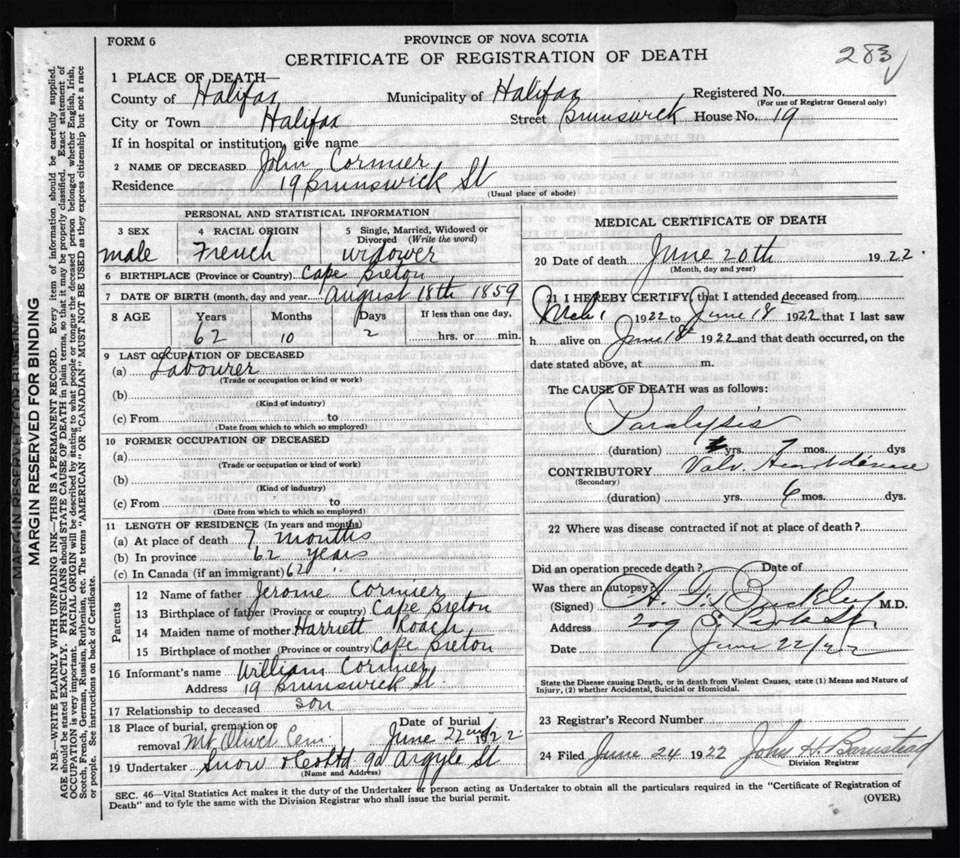 FORM 6
PROVINCE OF NOVA SCOTIA
CERTIFICATE OF REGISTRATION OF DEATH
283
1 PLACE OF DEATH—
County of Halifax Municipality of Halifax Registered No.
(For use of Registrar General only)
City or Town Halifax Street Brunswick House No. 19
If in hospital or institution, give name
2 NAME OF DECEASED John Cormier
Residence 19 Brunswick St
(Usual place of abode)
PERSONAL AND STATISTICAL INFORMATION
3 SEX 4 RACIAL ORIGIN 5 Single, Married, Widowed or Divorced (Write the word)
male French widower
6 BIRTHPLACE (Province or Country) Cape Breton
7 DATE OF BIRTH (month, day and year) August 18th 1859
8 AGE Years Months Days If less than one day,
62 10 2 hrs. or min.
9 LAST OCCUPATION OF DECEASED
(a) Labourer
(Trade or occupation or kind or work)
(b)
(Kind of industry)
(c) From to
(Date from which to which so employed)
10 FORMER OCCUPATION OF DECEASED
(a)
(Trade or occupation or kind of work)
(b)
(Kind of industry)
(c) From to
(Date from which to which so employed)
11 LENGTH OF RESIDENCE (In years and months)
(a) At place of death 7 months
(b) In province 62 years
(c) In Canada (if an immigrant) 62 "
Parents
12 Name of father Jerome Cormier
13 Birthplace of father (Province or country) Cape Breton
14 Maiden name of mother Harriett Roach
15 Birthplace of mother (Province or country) Cape Breton
16 Informant's name William Cormier
Address 19 Brunswick St.
17 Relationship to deceased son
18 Place of burial, cremation or removal Mt Olivet Cem Date of burial June 22nd 1922
19 Undertaker Snow & Co Ltd 90 Argyle St
(Name and Address)
MEDICAL CERTIFICATE OF DEATH
20 Date of death June 20th 1922.
(Month, day and year)
21 I HEREBY CERTIFY, that I attended deceased from
Mch 1 1922 to June 18 1922 that I last saw
h alive on June 18 1922 and that death occurred, on the
date stated above, at m.
The CAUSE OF DEATH was as follows:
Paralysis
(duration) yrs. 7 mos. dys
CONTRIBUTORY Valv. Heart disease
(Secondary)
(duration) yrs. 6 mos. dys.
22 Where was disease contracted if not at place of death?
Did an operation precede death? Date of
Was there an autopsy?
(Signed) Buckley M.D.
Address 209 S. Park St.
Date June 22/22
State the Disease causing Death, or in death from Violent Causes, state (1) Means and Nature of
Injury, (2) whether Accidental, Suicidal or Homicidal.
23 Registrar's Record Number
24 Filed June 24 1922 John H. Barnstead
Division Registrar
SEC. 46—Vital Statistics Act makes it the duty of the Undertaker or person acting as Undertaker to obtain all the particulars required in the "Certificate of Registration of
Death" and to fyle the same with the Division Registrar who shall issue the burial permit.
(OVER)
MARGIN RESERVED FOR BINDING
N.B.—WRITE PLAINLY WITH UNFADING INK—THIS IS A PERMANENT RECORD. Every item of information should be carefully supplied.
AGE should be stated EXACTLY. PHYSICIANS should STATE CAUSE OF DEATH in plain terms, so that it may be properly classified. Exact statement of
OCCUPATION is very important. RACIAL ORIGIN will be described by stating to what people or tongue the deceased person belonged, whether English, Irish,
Scotch, French, German, Russian, Ruthenian, etc. The terms "AMERICAN" or "CANADIAN" MUST NOT BE USED as they express citizenship but not a race
or people. See instructions on back of Certificate.